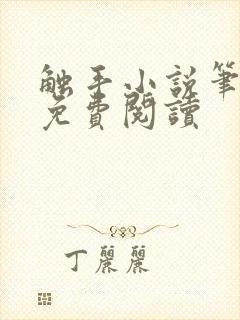 触手小说笔
免費閱讀
丁麗麗